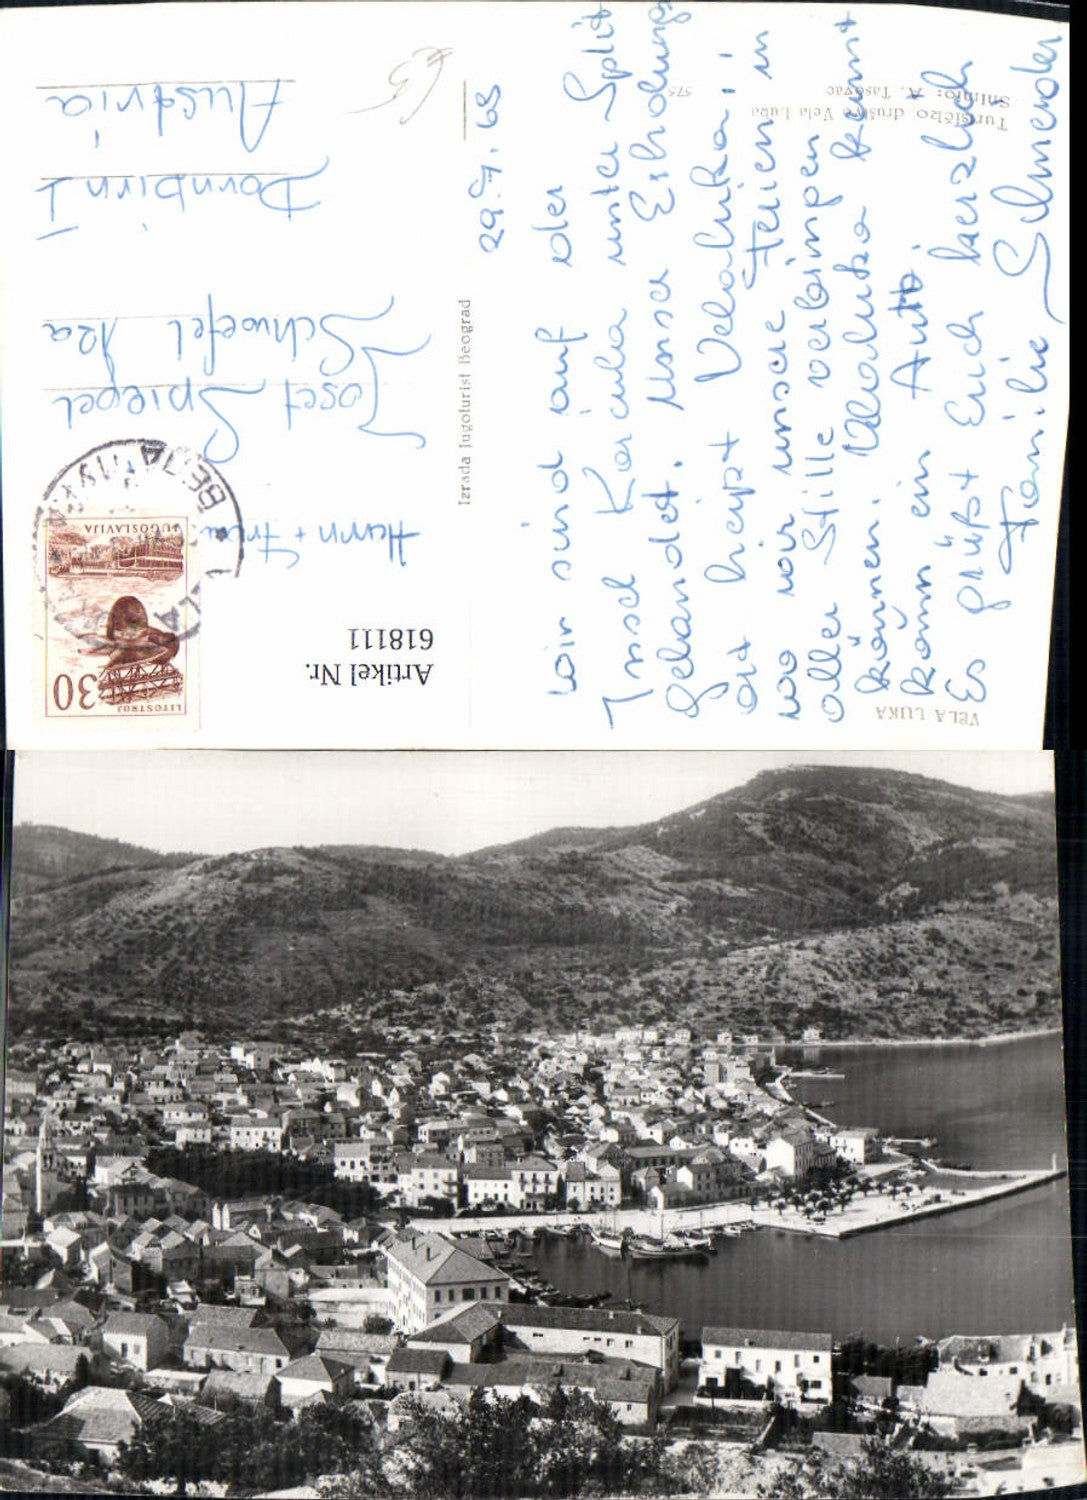 VELA LUKA
29.7.63
wir sind auf der
Insel Korcula unter Split
gelandet. Unser Erholungs
ort heißt Velaluka;
wo wir unsere Ferien in
aller Stille verbringen
können. Velaluka kennt
kaum ein Auto.
Es grüßt Euch herzlich
Familie
Turističko društvo Vela Luka
Snimio: A. Tasovac
575
Izrada Jugoturist Beograd
Artikel Nr.
618111
LITOSTROJ
30
JUGOSLAVIJA
ВЕЛА ЛУКА
VELA
Herrn + Frau
Josef Spiegel
Schwefel 12a
Dornbirn I
Austria